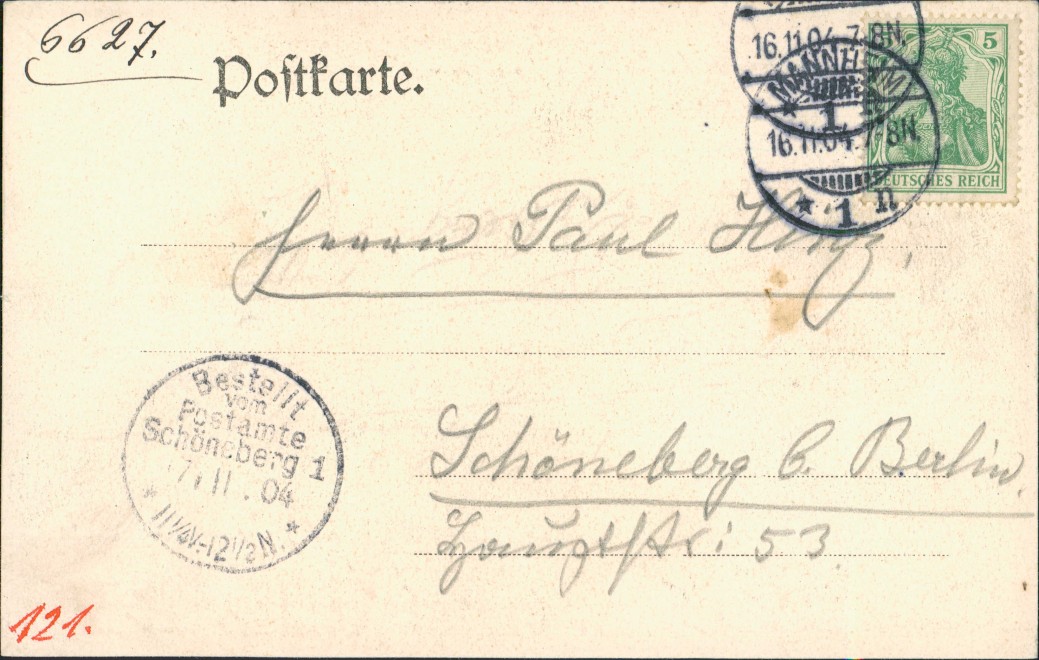 6627.
Postkarte.
16.11.04.7-8N.
MANNHEIM
* 1
16.11.04.7-8N.
* 1 n
5
DEUTSCHES REICH
Herrn Paul
Bestellt
vom
Postamte
Schöneberg 1
17.11.04
* 11¼V-12½N. *
Schöneberg b. Berlin.
Hauptstr: 53
121.